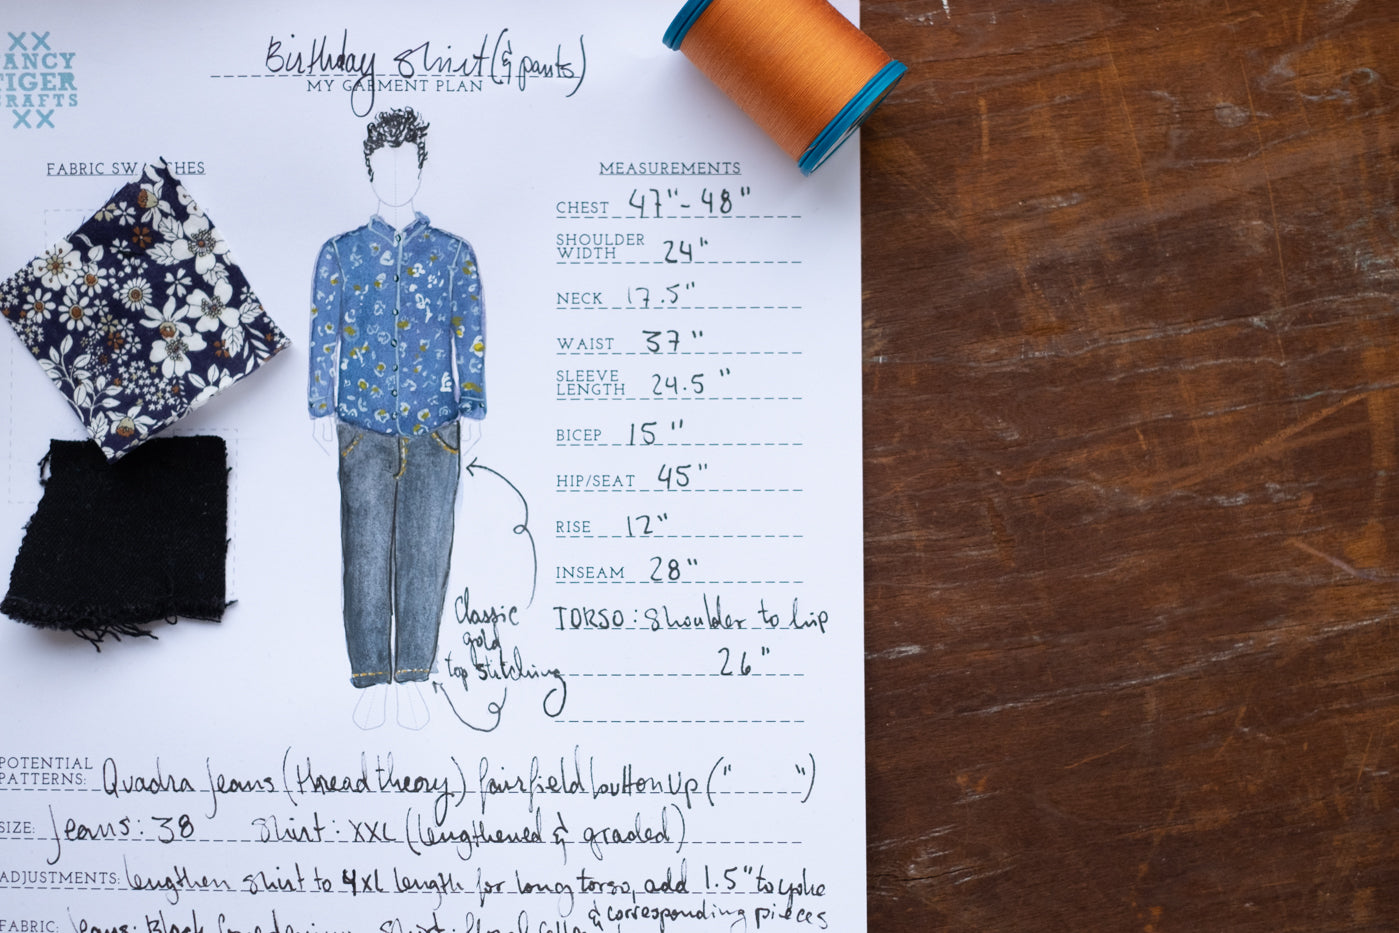 XX
ANCY
TIGER
CRAFTS
XX
Birthday Shirt (& pants)
MY GARMENT PLAN
FABRIC SW HES
MEASUREMENTS
CHEST 47"- 48"
SHOULDER
WIDTH 24"
NECK 17.5"
WAIST 37"
SLEEVE
LENGTH 24.5"
BICEP 15"
HIP/SEAT 45"
RISE 12"
INSEAM 28"
TORSO: Shoulder to hip
26"
Classic
gold
top stitching
POTENTIAL
PATTERNS: Quadra Jeans (thread theory) fairfield button up (" ")
SIZE: Jeans: 38 Shirt: XXL (lengthened & graded)
ADJUSTMENTS: lengthen shirt to 4XL length for long torso, add 1.5" to yoke
& corresponding pieces
FABRIC: Jeans: Black Shirt: floral